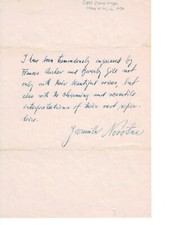 I have been tremendously impressed by
Frances Archer and Beverly Gile not
only with their beautiful voices but
also with the charming and versatile
interpretations of their vast reper-
toire.
Jarmila Novotna